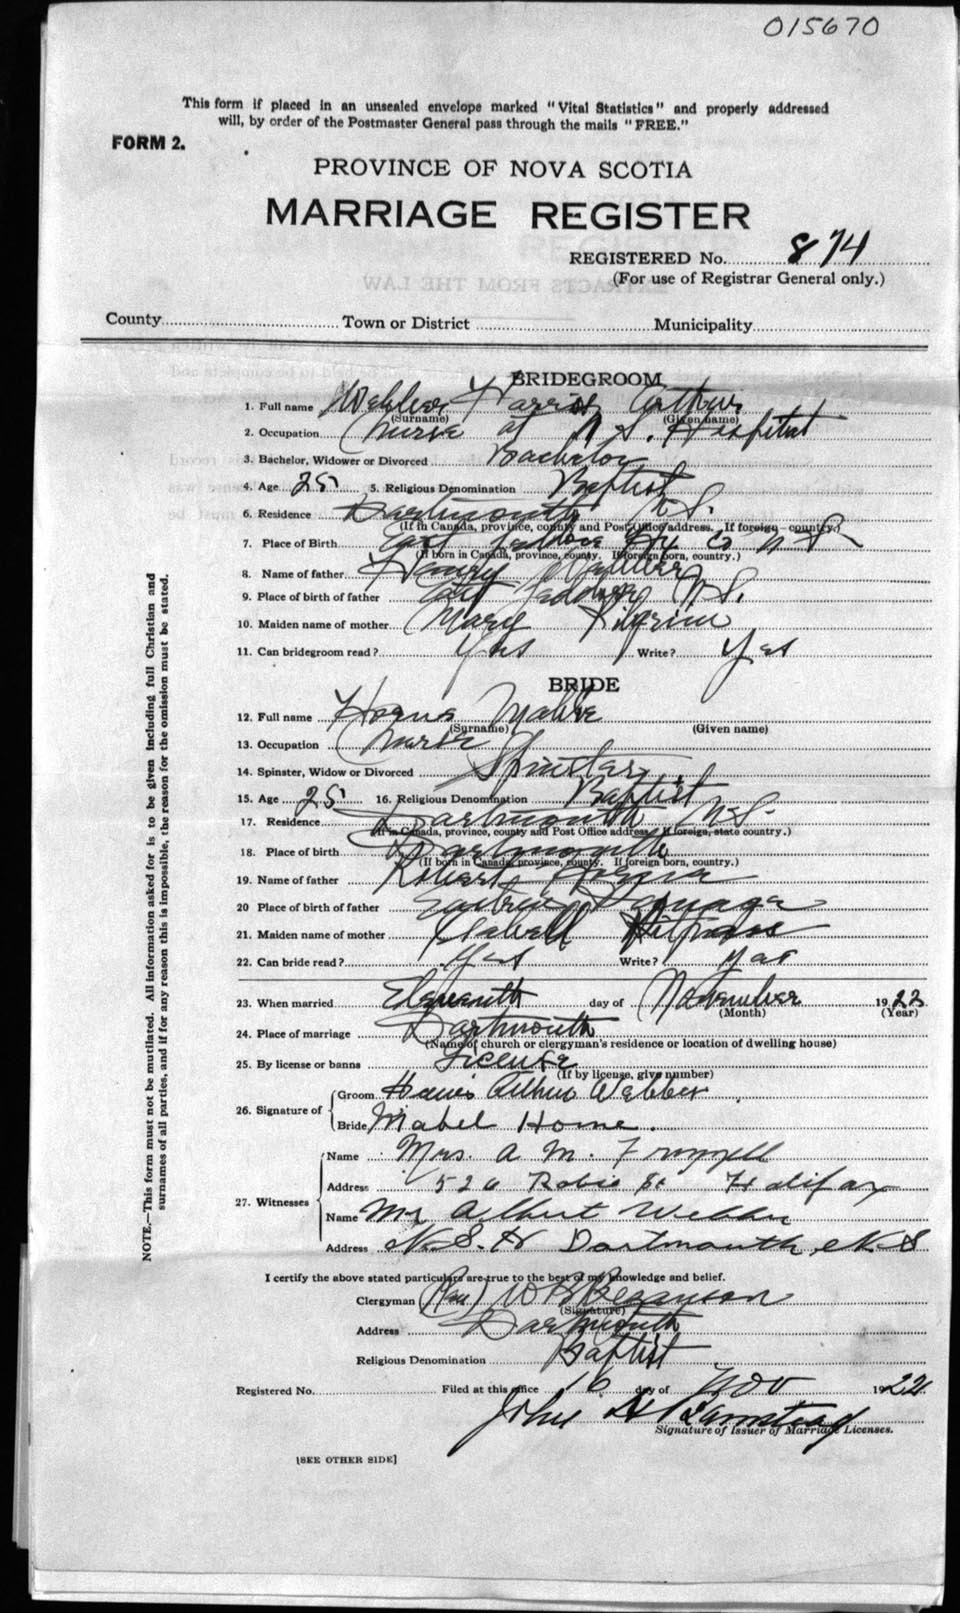 015670
This form if placed in an unsealed envelope marked "Vital Statistics" and properly addressed
will, by order of the Postmaster General pass through the mails "FREE."
FORM 2.
PROVINCE OF NOVA SCOTIA
MARRIAGE REGISTER
REGISTERED No. 874
(For use of Registrar General only.)
County Town or District Municipality
BRIDEGROOM
1. Full name Webber Harris Arthur
(Surname) (Given name)
2. Occupation Nurse at N.S. Hospital
3. Bachelor, Widower or Divorced Bachelor
4. Age 25 5. Religious Denomination Baptist
6. Residence Dartmouth N.S.
(If in Canada, province, county and Post Office address. If foreign country)
7. Place of Birth East Hx Co N S
(If born in Canada, province, county. If foreign born, country.)
8. Name of father Henry Webber
9. Place of birth of father N.S.
10. Maiden name of mother Mary Pilgrim
11. Can bridegroom read? Yes Write? Yes
BRIDE
12. Full name Horne
(Surname) (Given name)
13. Occupation Nurse
14. Spinster, Widow or Divorced Spinster
15. Age 25 16. Religious Denomination Baptist
17. Residence Dartmouth N.S.
(If in Canada, province, county and Post Office address. If foreign, state country.)
18. Place of birth Dartmouth
(If born in Canada, province, county. If foreign born, country.)
19. Name of father Robert Horne
20 Place of birth of father Eastern Passage
21. Maiden name of mother
22. Can bride read? Yes Write? Yes
23. When married Eleventh day of November 1922
(Month) (Year)
24. Place of marriage Dartmouth
(Name of church or clergyman's residence or location of dwelling house)
25. By license or banns License
(If by license, give number)
26. Signature of Groom Harris Arthur Webber
Bride Mabel Horne.
27. Witnesses Name Mrs. A M.
Address 526 Robie St Halifax
Name Mr Albert Webber
Address N.S.H Dartmouth, N S
I certify the above stated particulars are true to the best of my knowledge and belief.
Clergyman (Rev) W B Bezanson
(Signature)
Address Dartmouth
Religious Denomination Baptist
Registered No. Filed at this office 16 day of Nov 1922
John H
Signature of Issuer of Marriage Licenses.
[SEE OTHER SIDE]
NOTE.—This form must not be mutilated. All information asked for is to be given including full Christian and
surnames of all parties, and if for any reason this is impossible, the reason for the omission must be stated.